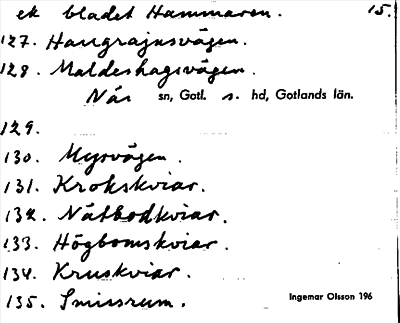 ek bladet Hammaren. 15.
127. Haugrajnsvägen.
128. Maldeshagsvägen.
När sn, Gotl. s. hd, Gotlands län.
129.
130. Myrvägen.
131. Krokskviar.
132. Nätbodkviar.
133. Högbomskviar.
134. Kruskviar.
135. Smissrum. Ingemar Olsson 196